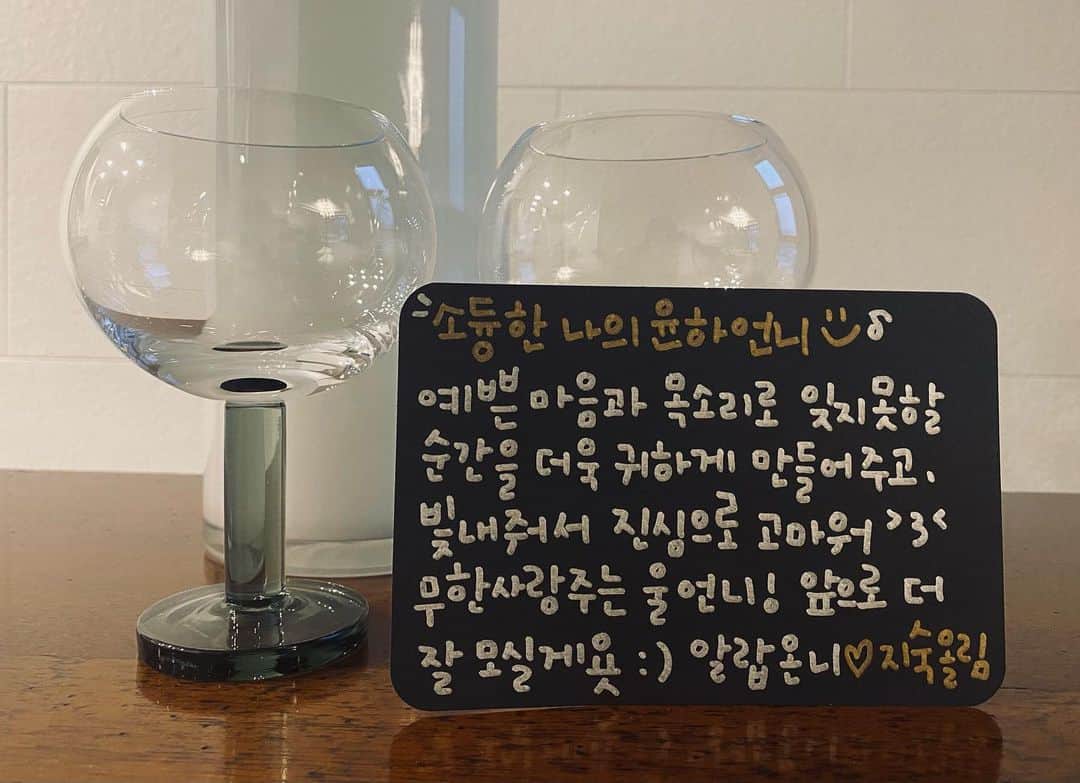 소듕한 나의 윤하언니
예쁜 마음과 목소리로 잊지못할
순간을 더욱 귀하게 만들어주고,
빛내주어서 진심으로 고마워 >3<
무한사랑주는 울언니! 앞으로 더
잘 모실게욧 :) 알랍온니♡지숙올림